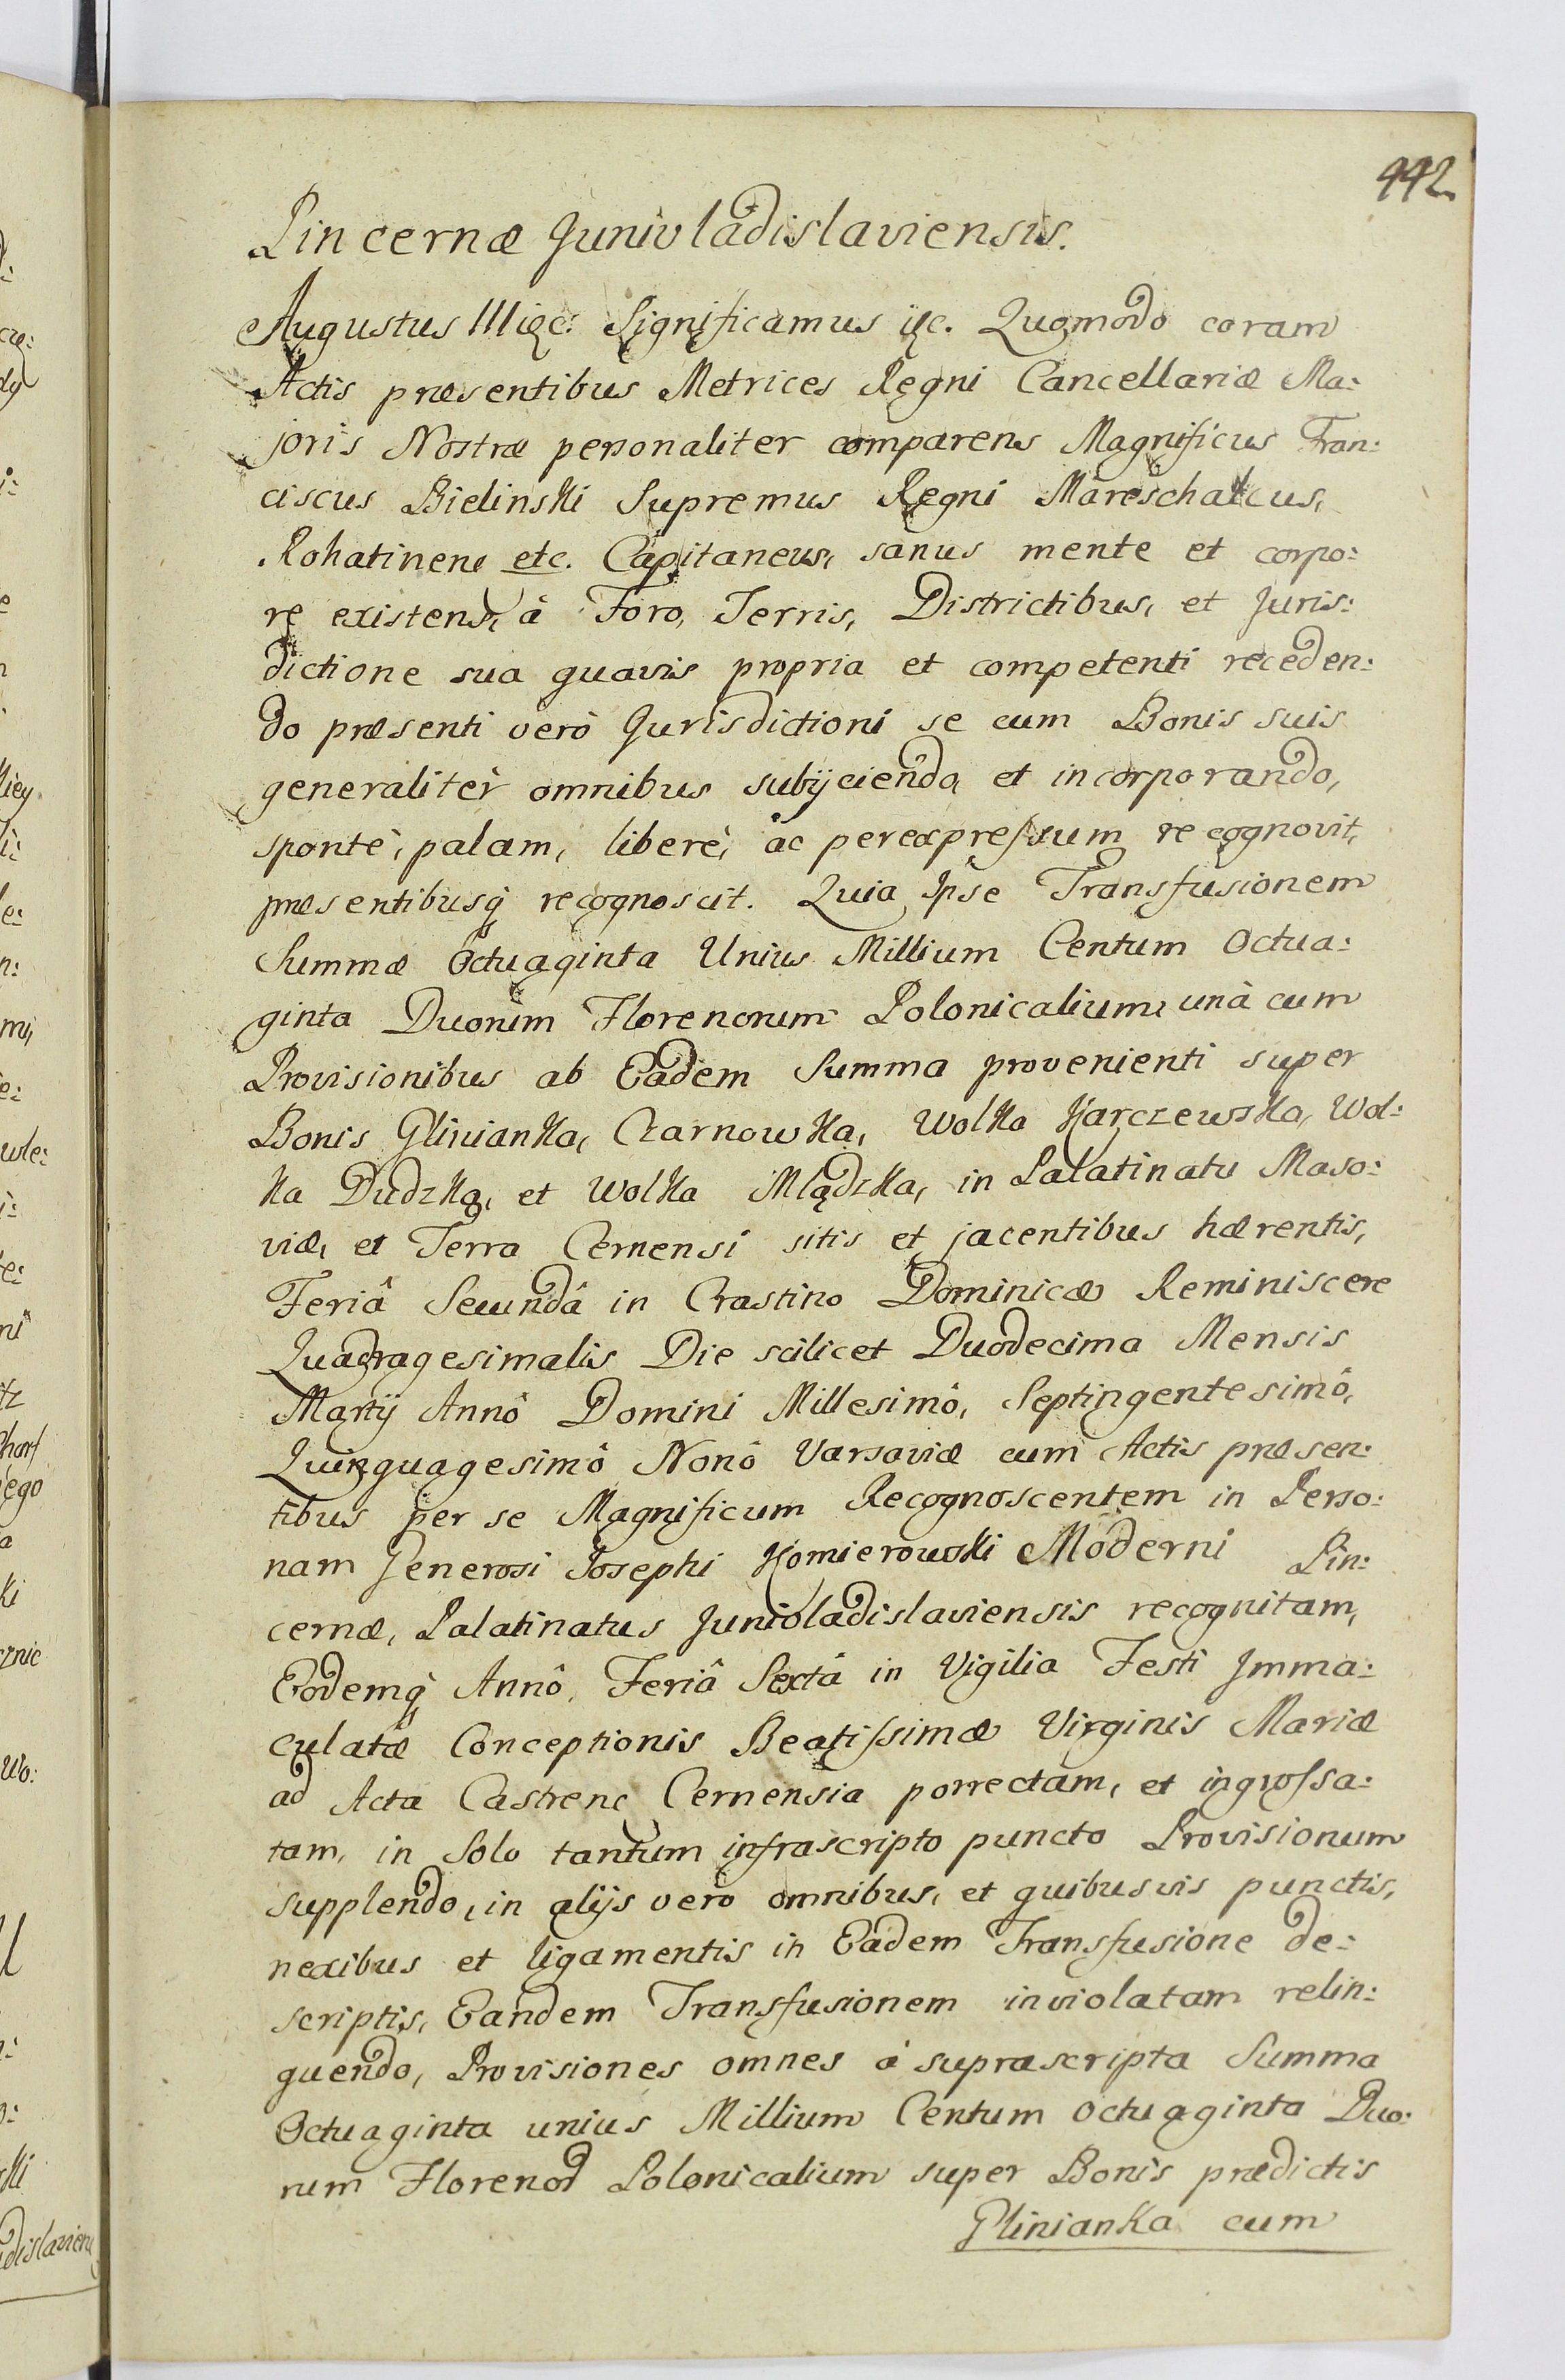 442
Pincernæ Junivladislaviensis.
Augustus III etc: Significamus etc. Quomodo coram
Actis præsentibus Metrices Regni Cancellariæ Ma:
joris Nostræ personaliter comparens Magnificus Fran:
ciscus Bielinski Supremus Regni Mareschalcus,
Rohatinens etc. Capitaneus, sanus mente et corpo:
re existens, à Foro, Terris, Districtibus, et Juris:
dictione sua quavis propria et competenti receden:
do præsenti verò Jurisdictioni se cum Bonis suis
generalitèr omnibus subijciendo, et incorporando,
spontè, palam, liberè, ac perexpressum recognovit,
præsentibusq recognoscit. Quia Ipse Transfusionem
Summæ Octuaginta Unius Millium Centum Octua:
ginta Duorum Florenorum Polonicalium, unà cum
Provisionibus ab Eadem Summa provenienti super
Bonis Glinianka, Czarnowka, Wolka Karczewska, Wol:
ka Dudzka, et Wolka Mlądzka, in Palatinatu Maso:
viæ, et Terra Cernensi sitis et jacentibus hærentis,
Feriâ Secundâ in Crastino Dominicæ Reminiscere
Quadragesimalis Die scilicet Duodecima Mensis
Martij Annô Domini Millesimô, Septingentesimô,
Quinquagesimô Nonô Varsaviæ cum Actis præsen:
tibus per se Magnificum Recognoscentem in Perso:
nam Generosi Josephi Komierowski Moderni Pin:
cernæ, Palatinatus Junivladislaviensis recognitam,
Eodemq Annô, Feriâ Sextâ in Vigilia Festi Imma:
culatæ Conceptionis Beatissimæ Virginis Mariæ
ad Acta Castrens Cernensia porrectam, et ingrossa:
tam, in Solo tantum infrascripto puncto Provisionum
supplendo, in alijs vero omnibus, et quibusvis punctis,
nexibus et ligamentis in Eadem Transfusione de:
scriptis, Eandem Transfusionem inviolatam relin:
quendo, Provisiones omnes à suprascripta Summa
Octuaginta unius Millium Centum Octuaginta Duo:
rum Florenor Polonicalium super Bonis prædictis
Glinianka cum